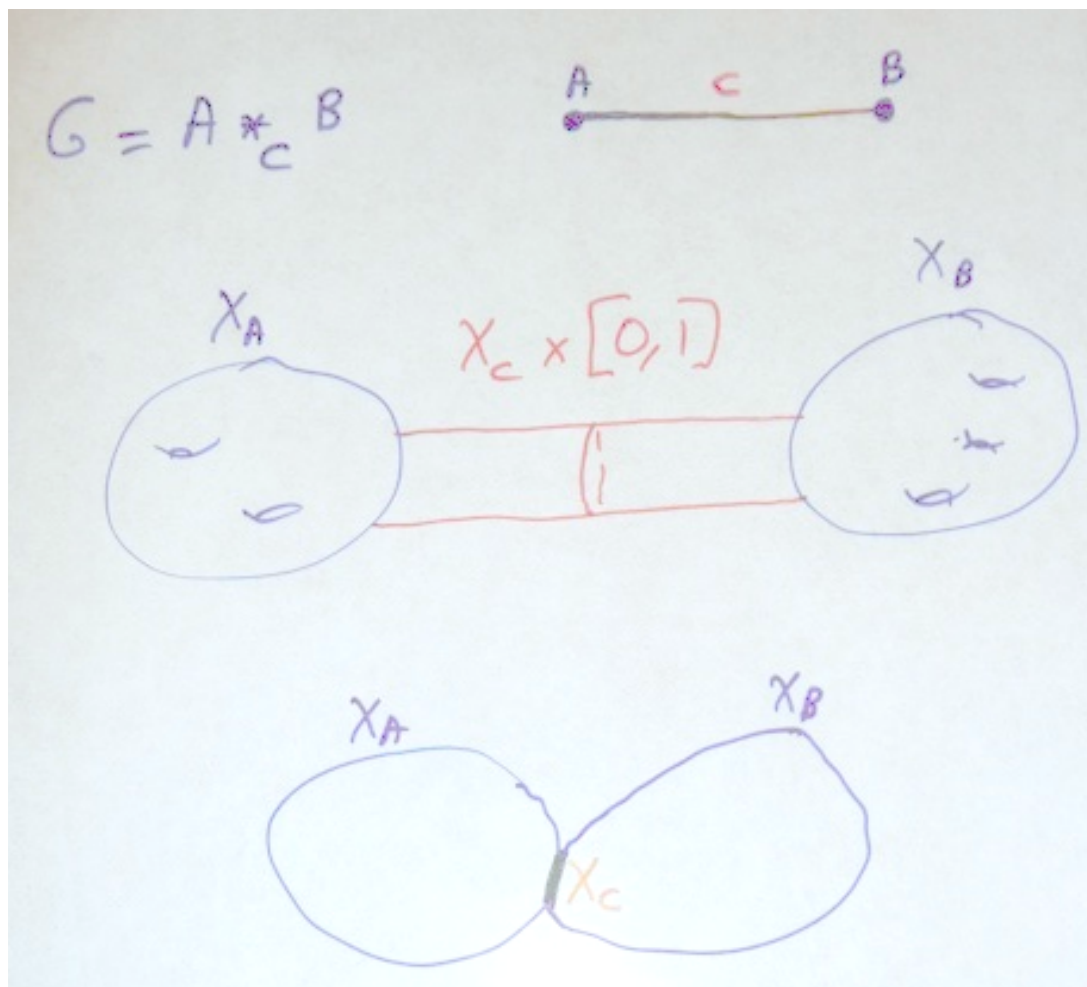 G = A *_C B
A C B
X_A
X_B
X_C × [0,1]
X_A
X_B
X_C